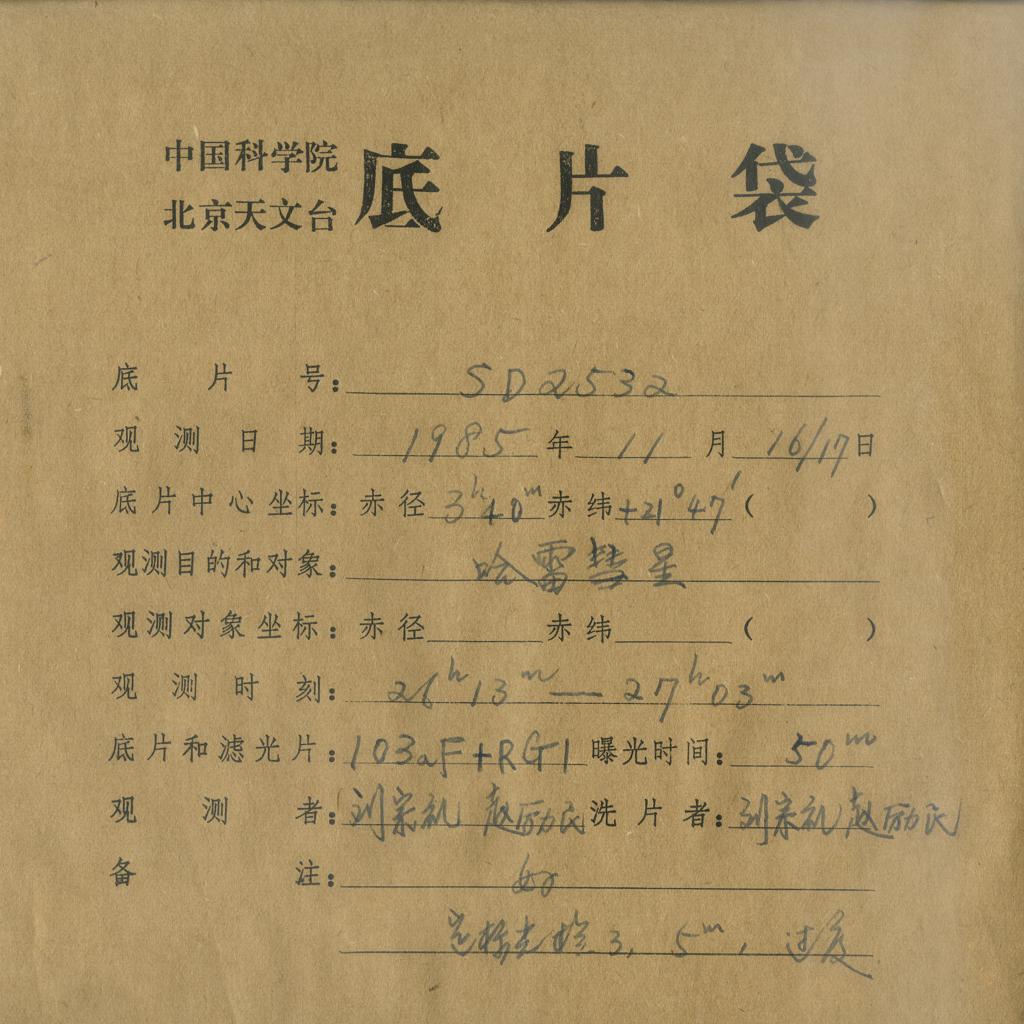 中国科学院
北京天文台
底片袋
底片号：SD2532
观测日期：1985年11月16/17日
底片中心坐标：赤径3ʰ40ᵐ赤纬+21°47′（ ）
观测目的和对象：哈雷彗星
观测对象坐标：赤径 赤纬 （ ）
观测时刻：26ʰ13ᵐ—27ʰ03ᵐ
底片和滤光片：103aF+RG1 曝光时间：50ᵐ
观测者：刘宗礼 赵励民 洗片者：刘宗礼 赵励民
备注：好
定标光 3，5ᵐ，过度